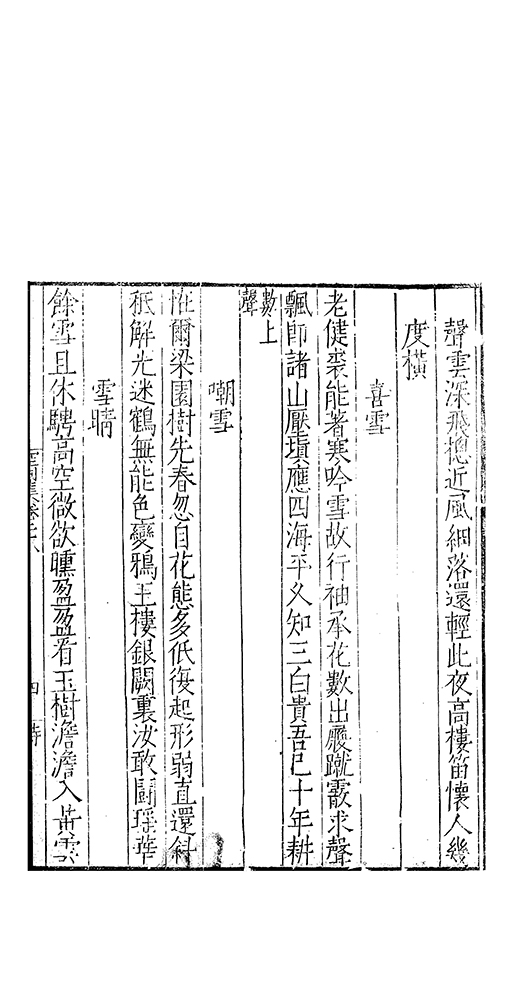 聲雲深飛樬近風細落還輕此夜高樓笛懷人幾
度橫
喜雪
老健裘能著寒吟雪故行袖承花數出屐蹴霰求聲
數上
聲
飄即諸山壓塡應四海平久知三白貴吾已十年耕
嘲雪
怪爾梁園樹先春忽自花態多低復起形弱直還斜
秪解光迷鶴無能色變鴉玉樓銀闕裏汝敢鬪瑤華
雪晴
餘雪且休騁高空微欲曛盈盈看玉樹澹澹入黃雲
四